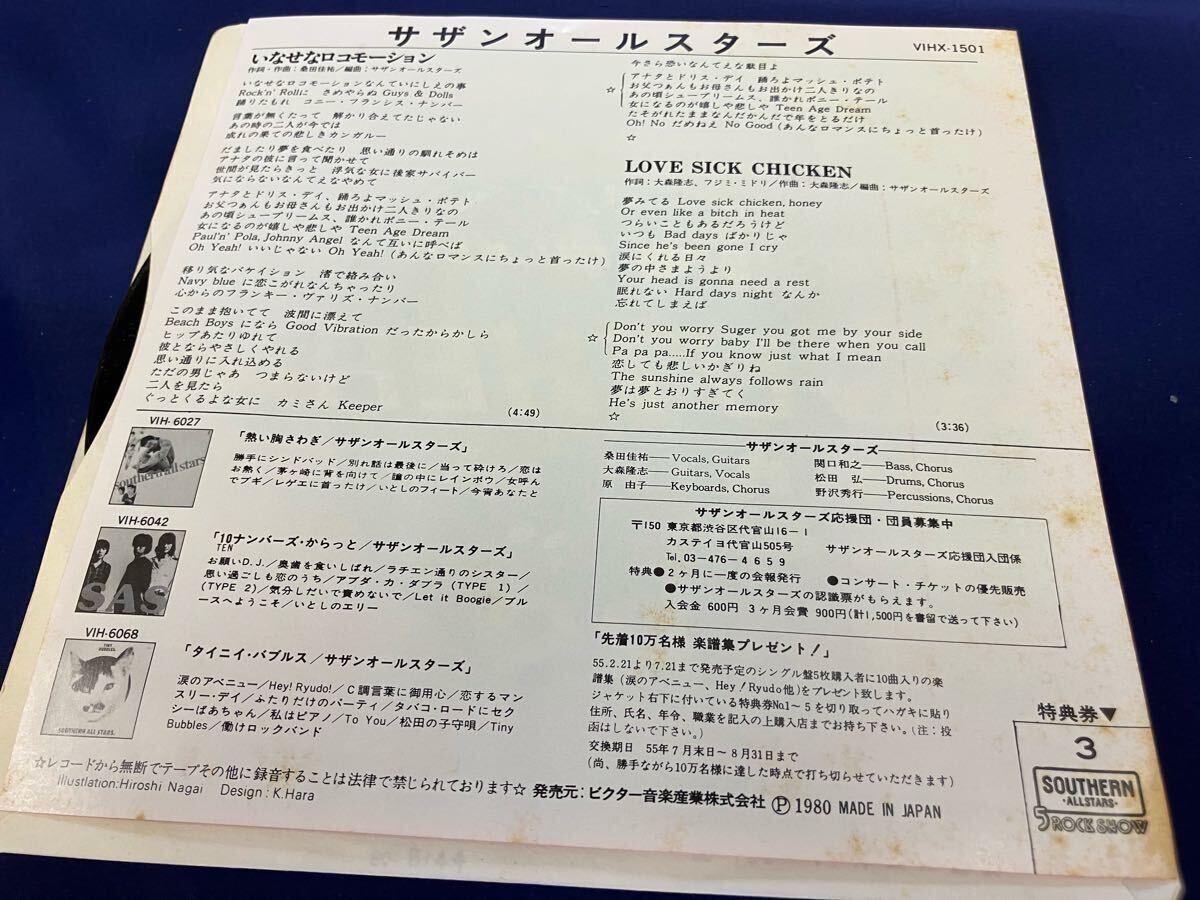 サザンオールスターズ
VIHX-1501
いなせなロコモーション
作詞・作曲：桑田佳祐／編曲：サザンオールスターズ
いなせなロコモーションなんていにしえの事
Rock'n' Rollに さめやらぬ Guys & Dolls
踊りたもれ コニー・フランシス・ナンバー
言葉が無くたって 解かり合えてたじゃない
あの時の二人が今では
成れの果ての悲しきカンガルー
だましたり夢を食べたり 思い通りの馴れそめは
アナタの彼に言って聞かせて
世間が見たらきっと 浮気な女に後家サバイバー
気にならないなんてえなやめて
アナタとドリス・デイ、踊ろよマッシュ・ポテト
お父つぁんもお母さんもお出かけ二人きりなの
あの頃シュープリームス、誰かれポニー・テール
女になるのが嬉しや悲しや Teen Age Dream
Paul'n' Pola, Johnny Angel なんて互いに呼べば
Oh Yeah! いいじゃない Oh Yeah! (あんなロマンスにちょっと首ったけ)
移り気なバケイション 渚で絡み合い
Navy blue に恋こがれなんちゃったり
心からのフランキー・ヴァリズ・ナンバー
このまま抱いてて 波間に漂えて
Beach Boys になら Good Vibration だったからかしら
ヒップあたりゆれて
彼とならやさしくやれる
思い通りに入れ込める
ただの男じゃあ つまらないけど
二人を見たら
ぐっとくるよな女に カミさん Keeper
(4:49)
今さら恐いなんてえな駄目よ
☆
アナタとドリス・デイ 踊ろよマッシュ・ポテト
お父つぁんもお母さんもお出かけ二人きりなの
あの頃シュープリームス、誰かれポニー・テール
女になるのが嬉しや悲しや Teen Age Dream
たそがれたままなんだかんだで年をとるだけ
Oh! No だめねえ No Good (あんなロマンスにちょっと首ったけ)
☆
LOVE SICK CHICKEN
作詞：大森隆志、フジミ・ミドリ／作曲：大森隆志／編曲：サザンオールスターズ
夢みてる Love sick chicken, honey
Or even like a bitch in heat
つらいこともあるだろうけど
いつも Bad days ばかりじゃ
Since he's been gone I cry
涙にくれる日々
夢の中さまようより
Your head is gonna need a rest
眠れない Hard days night なんか
忘れてしまえば
☆
Don't you worry Suger you got me by your side
Don't you worry baby I'll be there when you call
Pa pa pa.....If you know just what I mean
恋しても悲しいかぎりね
The sunshine always follows rain
夢は夢とおりすぎてく
He's just another memory
☆
(3:36)
VIH-6027
southern all stars
「熱い胸さわぎ／サザンオールスターズ」
勝手にシンドバッド／別れ話は最後に／当って砕けろ／恋は
お熱く／茅ヶ崎に背を向けて／瞳の中にレインボウ／女呼ん
でブギ／レゲエに首ったけ／いとしのフィート／今宵あなたと
VIH-6042
SAS
「10ナンバーズ・からっと／サザンオールスターズ」
TEN
お願いD.J.／奥歯を食いしばれ／ラチエン通りのシスター／
思い過ごしも恋のうち／アブダ・カ・ダブラ (TYPE 1)／
(TYPE 2)／気分しだいで責めないで／Let it Boogie／ブル
ースへようこそ／いとしのエリー
VIH-6068
TINY BUBBLES
SOUTHERN ALL STARS
「タイニイ・バブルス／サザンオールスターズ」
涙のアベニュー／Hey! Ryudo!／C調言葉に御用心／恋するマン
スリー・デイ／ふたりだけのパーティ／タバコ・ロードにセク
シーばあちゃん／私はピアノ／To You／松田の子守唄／Tiny
Bubbles／働けロックバンド
サザンオールスターズ
桑田佳祐——Vocals, Guitars
関口和之——Bass, Chorus
大森隆志——Guitars, Vocals
松田 弘——Drums, Chorus
原 由子——Keyboards, Chorus
野沢秀行——Percussions, Chorus
サザンオールスターズ応援団・団員募集中
〒150 東京都渋谷区代官山16－1
カステイヨ代官山505号 サザンオールスターズ応援団入団係
Tel. 03-476-4659
特典●2ヶ月に一度の会報発行 ●コンサート・チケットの優先販売
●サザンオールスターズの認識票がもらえます。
入会金 600円 3ヶ月会費 900円(計1,500円を書留で送って下さい)
「先着10万名様 楽譜集プレゼント！」
55.2.21より7.21まで発売予定のシングル盤5枚購入者に10曲入りの楽
譜集 (涙のアベニュー、Hey! Ryudo他) をプレゼント致します。
ジャケット右下に付いている特典券No.1～5を切り取ってハガキに貼り
住所、氏名、年令、職業を記入の上購入店までお持ち下さい。(注：投
函はしないで下さい。)
交換期日 55年7月末日～8月31日まで
(尚、勝手ながら10万名様に達した時点で打ち切らせていただきます)
特典券▼
3
SOUTHERN
ALLSTARS
5 ROCK SHOW
☆レコードから無断でテープその他に録音することは法律で禁じられております☆ 発売元：ビクター音楽産業株式会社 Ⓟ 1980 MADE IN JAPAN
Illustlation:Hiroshi Nagai Design：K.Hara